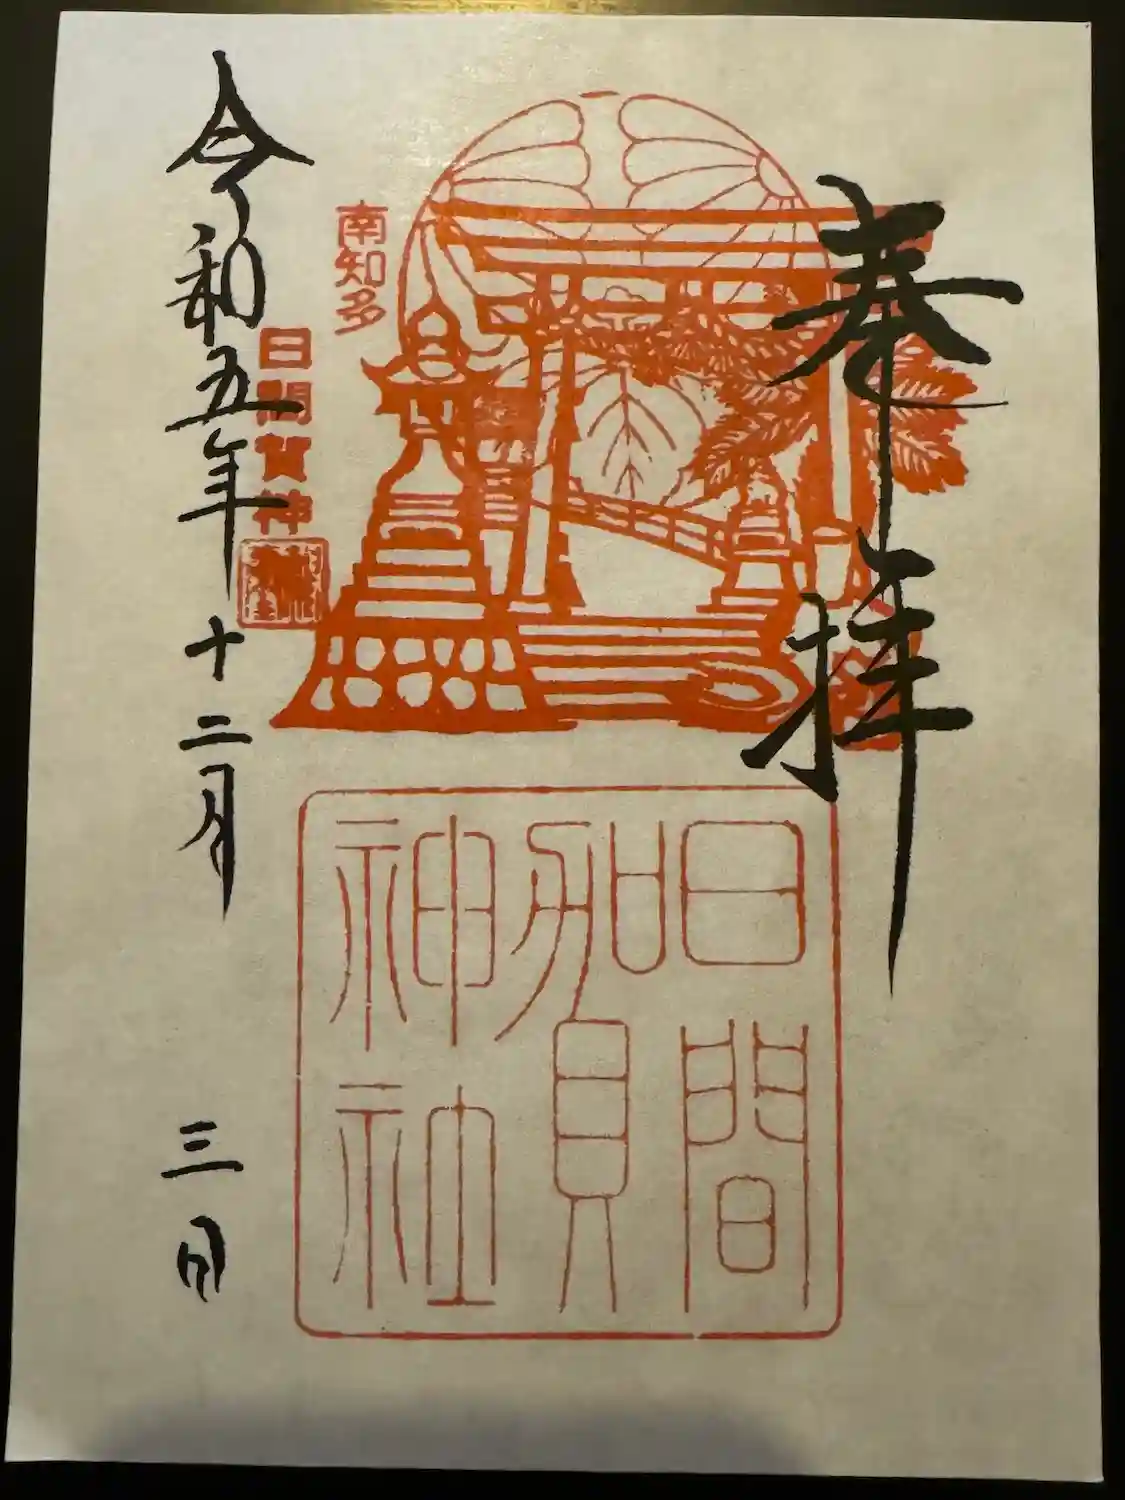 奉拝
南知多
日間賀神
日間
賀
神社
令和五年十二月三日